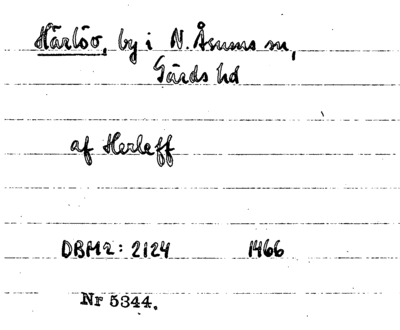 Härlöv, by i N. Åsums sn,
Gärds hd
af Herleff
DBM2: 2124 1466
Nr 5344.